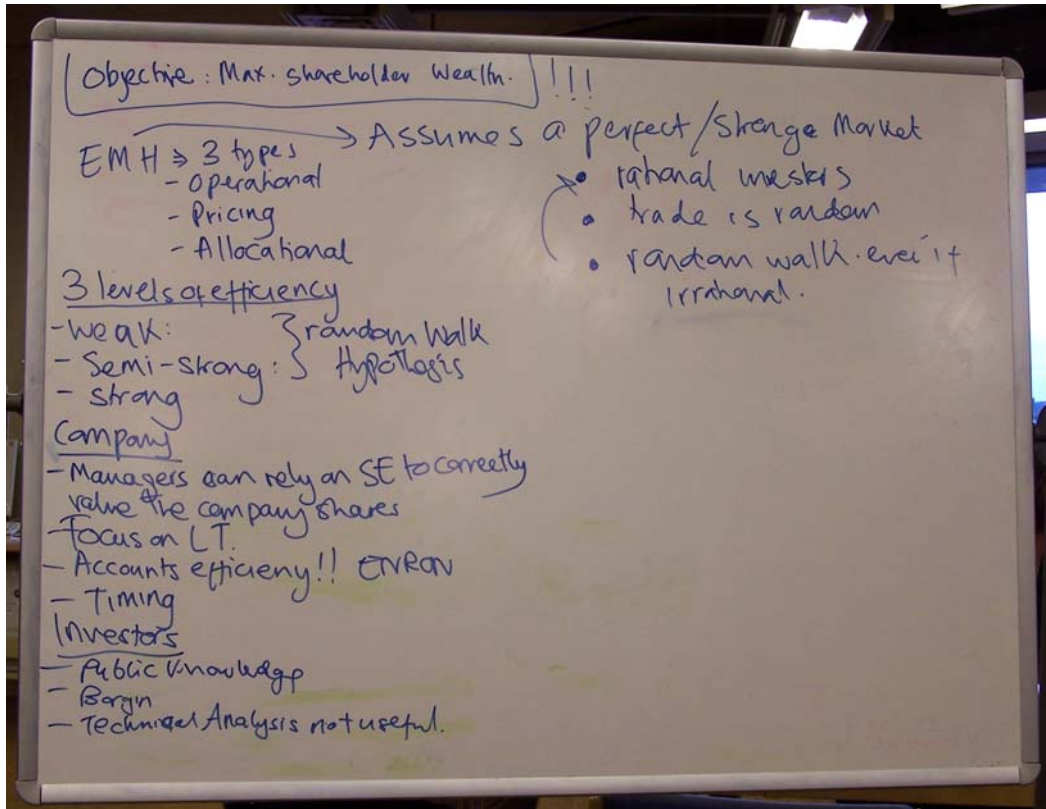 Objective: Max. Shareholder Wealth. !!!
EMH → 3 types
- Operational
- Pricing
- Allocational
→ Assumes a perfect/Strange Market
• rational investors
• trade is random
• random walk even if
irrational.
3 levels of efficiency
- Weak: } random Walk
- Semi-Strong: } Hypothesis
- Strong
Company
- Managers can rely on SE to correctly
value the company shares
- Focus on LT.
- Accounts efficieny!! ENRON
- Timing
Investors
- Public Knowledge
- Bargin
- Technical Analysis not useful.